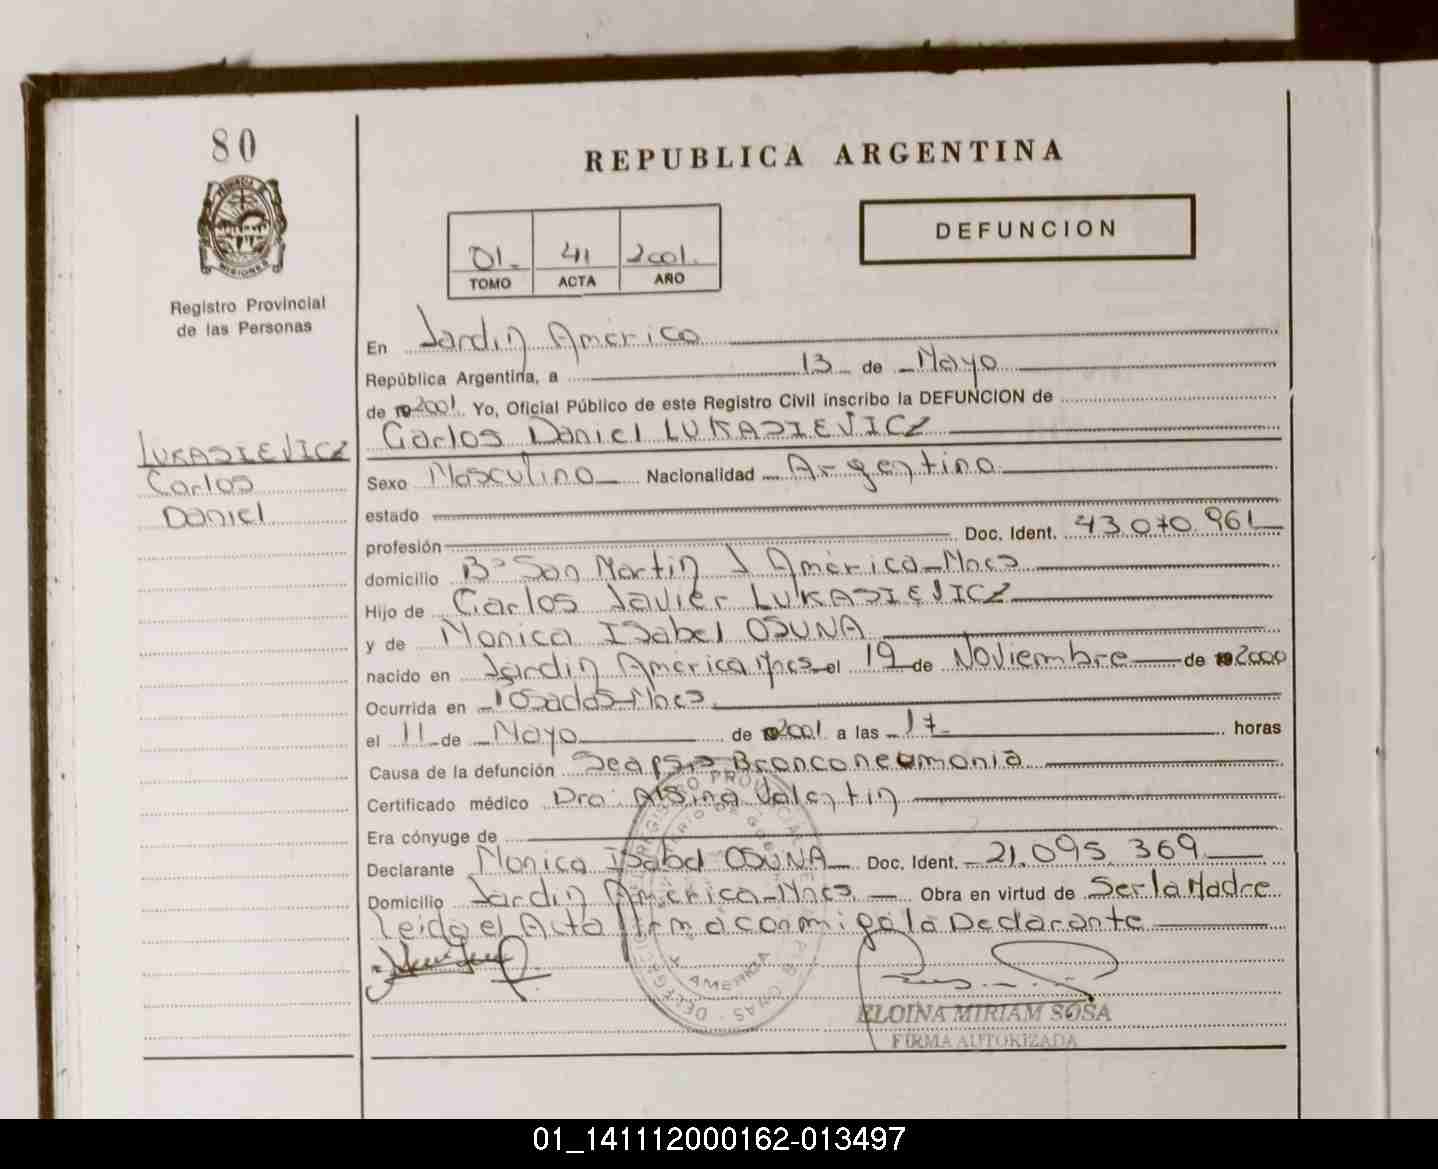 80
PROVINCIA DE
MISIONES
Registro Provincial
de las Personas
LUKASIEVICZ
Carlos
Daniel
REPUBLICA ARGENTINA
01. 41 2001.
TOMO ACTA AÑO
DEFUNCION
En Jardin América
República Argentina, a 13 de Mayo
de 2001. Yo, Oficial Público de este Registro Civil inscribo la DEFUNCION de
Carlos Daniel LUKASIEVICZ
Sexo Masculino Nacionalidad Argentino
estado
profesión Doc. Ident. 43.070.961
domicilio Bº San Martin J América-Mnes
Hijo de Carlos Javier LUKASIEVICZ
y de Monica ISabel OSUNA
nacido en Jardin America Mnes el 19 de Noviembre de 2000
Ocurrida en Posadas-Mnes
el 11 de Mayo de 2001 a las 17 horas
Causa de la defunción Seapsis Bronconeumonia
Certificado médico Dra: Alsina Valentin
Era cónyuge de
Declarante Monica ISabel OSUNA Doc. Ident. 21.095.369
Domicilio Jardin América-Mnes Obra en virtud de Ser la Madre
leida el Acta firma conmigo la Declarante
J. AMERICA
ELOINA MIRIAM SOSA
FIRMA AUTORIZADA
01_141112000162-013497